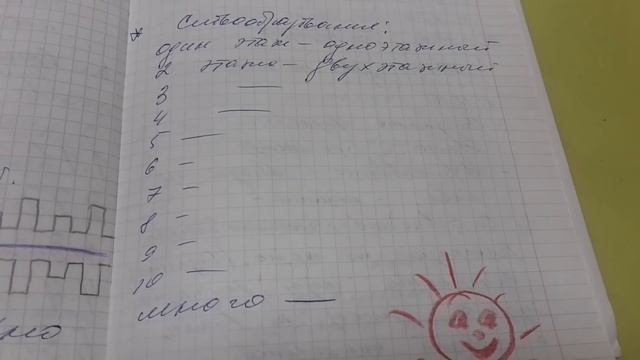 * Словообразование:
один этаж – одноэтажный
2 этажа – двухэтажный
3 —
4 —
5 —
6 –
7 –
8 –
9 –
10 —
много —